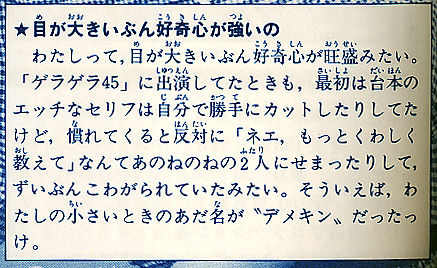 ★目が大きいぶん好奇心が強いの
わたしって,目が大きいぶん好奇心が旺盛みたい。
「ゲラゲラ45」に出演してたときも,最初は台本の
エッチなセリフは自分で勝手にカットしたりしてた
けど,慣れてくると反対に「ネエ,もっとくわしく
教えて」なんてあのねのねの2人にせまったりして,
ずいぶんこわがられていたみたい。そういえば,わ
たしの小さいときのあだ名が〝デメキン〟だったっ
け。